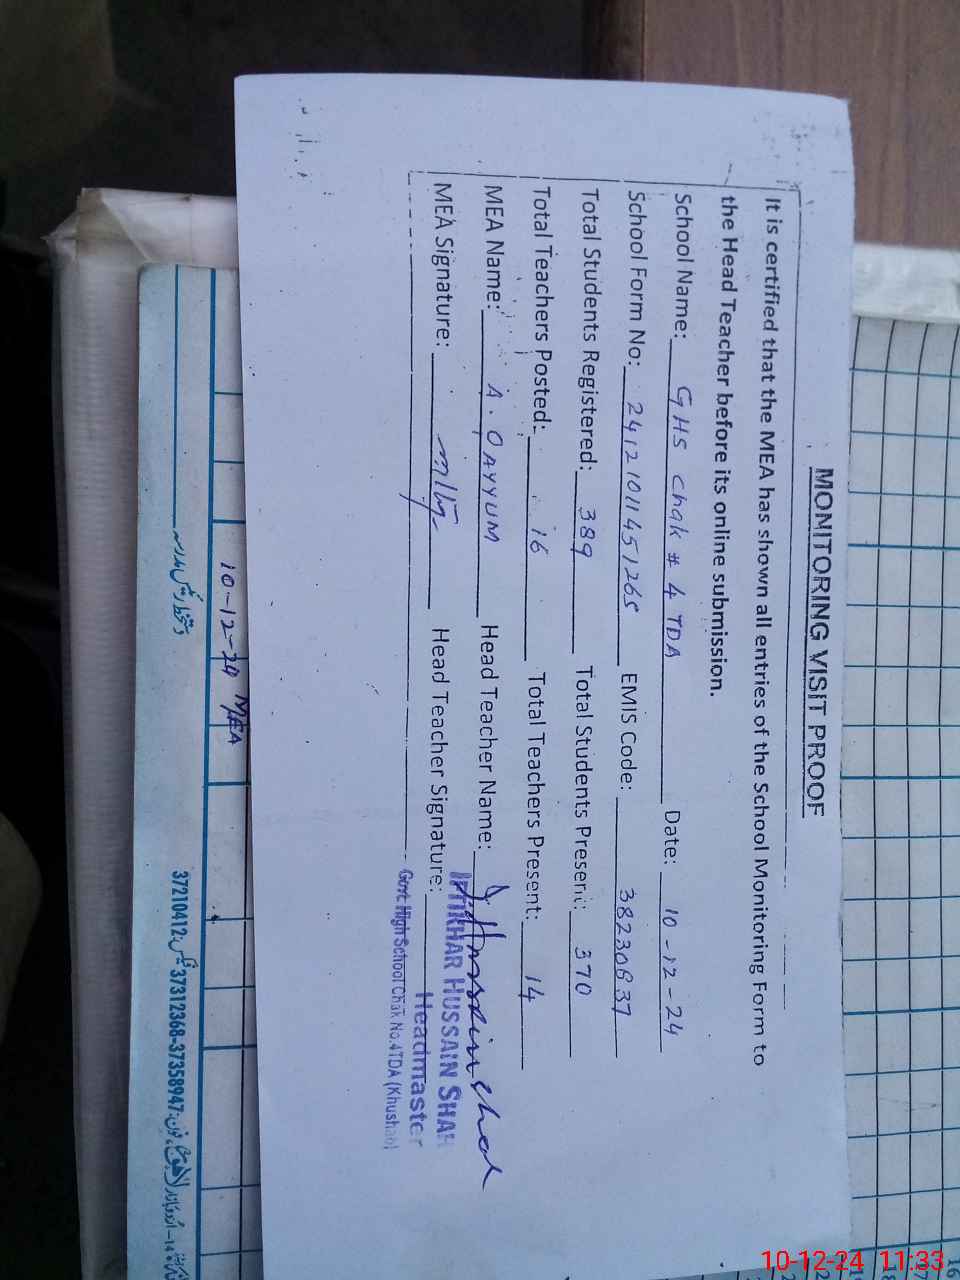 MONITORING VISIT PROOF
It is certified that the MEA has shown all entries of the School Monitoring Form to
the Head Teacher before its online submission.
School Name: GHS Chak # 4 TDA Date: 10-12-24
School Form No: 2412101451265 EMIS Code: 38230637
Total Students Registered: 389 Total Students Present: 370
Total Teachers Posted: 16 Total Teachers Present: 14
MEA Name: A. QAYYUM Head Teacher Name:
MEA Signature: Head Teacher Signature:
IFTIKHAR HUSSAIN SHAH
Headmaster
Govt: High School Chak No.4TDA (Khushab)
10-12-24 MEA
37210412 37312368-37358947
10-12-24 11:33